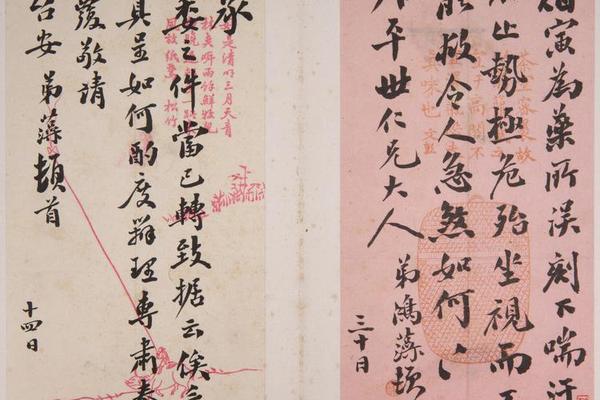 寅為藥所誤刻下喘汗
止勢極危殆坐視而
能救令人急煞如何
平世仁兄大人
弟鴻藻頓
三十日
承
委之件當已轉致據云俟
具呈如何酌度辦理專肅奉
覆敬請
台安 弟藻頓首
十四日